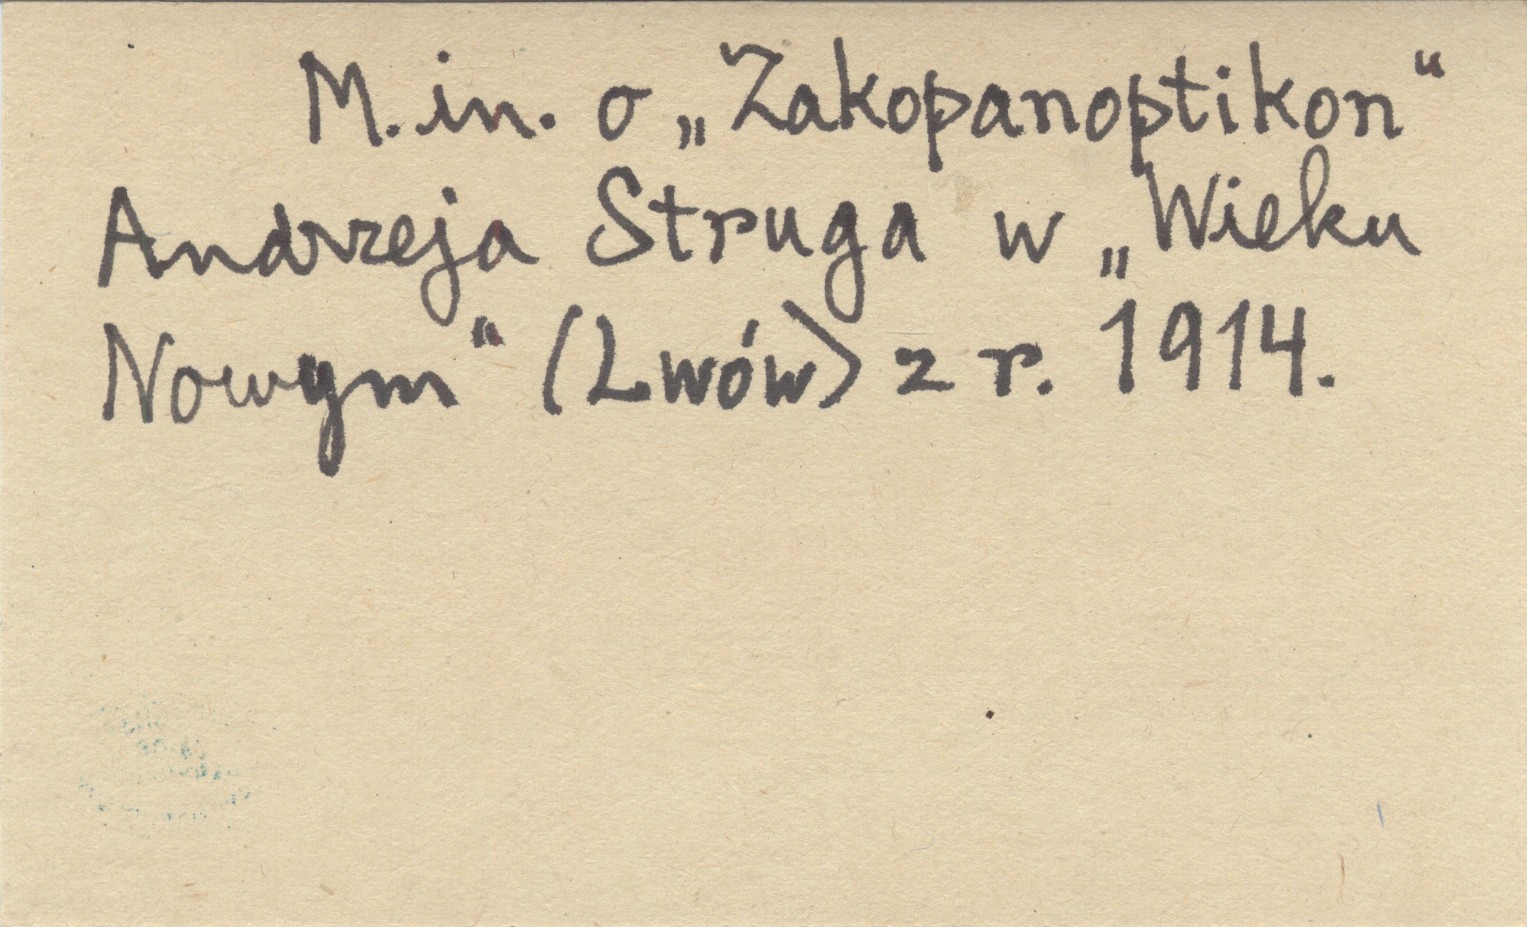 M.in. o „Zakopanoptikon“
Andrzeja Struga w „Wieku
Nowym“ (Lwów) z r. 1914.